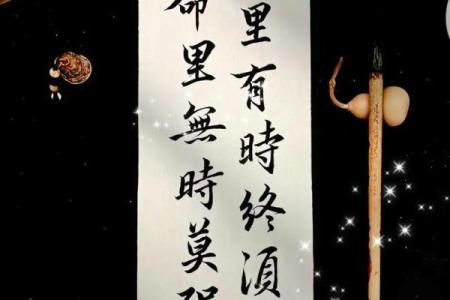 里有時終須
命里無時莫